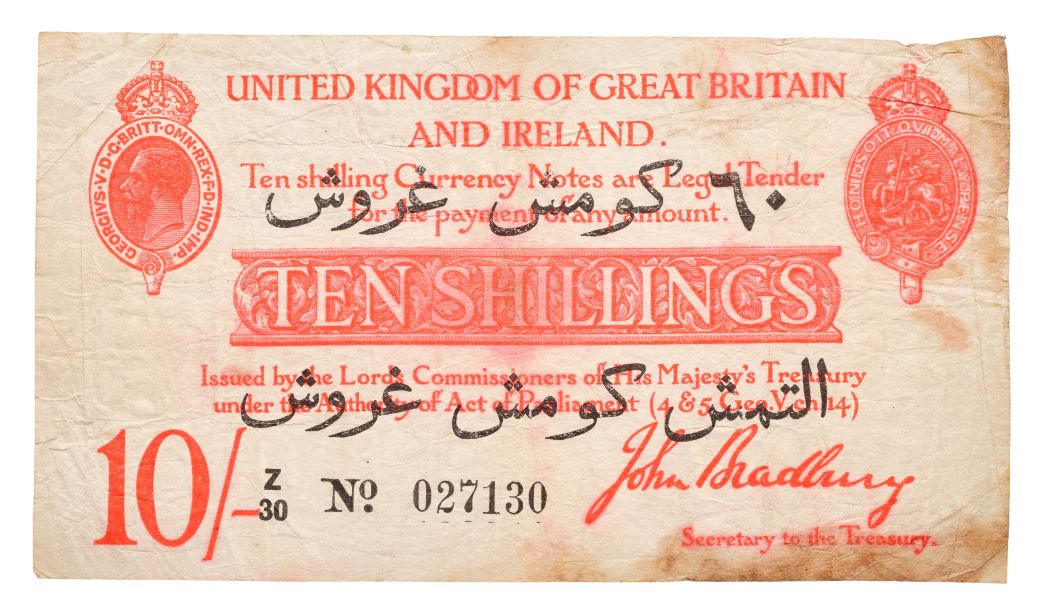 UNITED KINGDOM OF GREAT BRITAIN
AND IRELAND.
GEORGIVS·V·D·G·BRITT·OMN·REX·F·D·IND·IMP·
HONI·SOIT·QVI·MAL·Y·PENSE
Ten shilling Currency Notes are Legal Tender
٦٠ كومش غروش
for the payment of any amount.
TEN SHILLINGS
Issued by the Lords Commissioners of His Majesty's Treasury
التمش كومش غروش
under the Authority of Act of Parliament (4 & 5 Geo.V.ch.14)
10/-
Z
30
No. 027130
John Bradbury
Secretary to the Treasury.